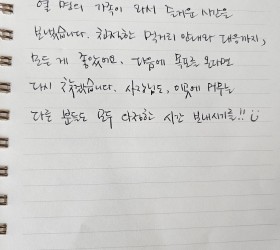 열 명의 가족이 와서 즐거운 시간을
보냈습니다. 친절한 먹거리 안내와 대응까지,
모든 게 좋았어요. 다음에 목포를 오다면
다시 찾겠습니다. 사장님도, 이곳에 머무는
다른 분들도 모두 다정한 시간 보내시기를!! :)